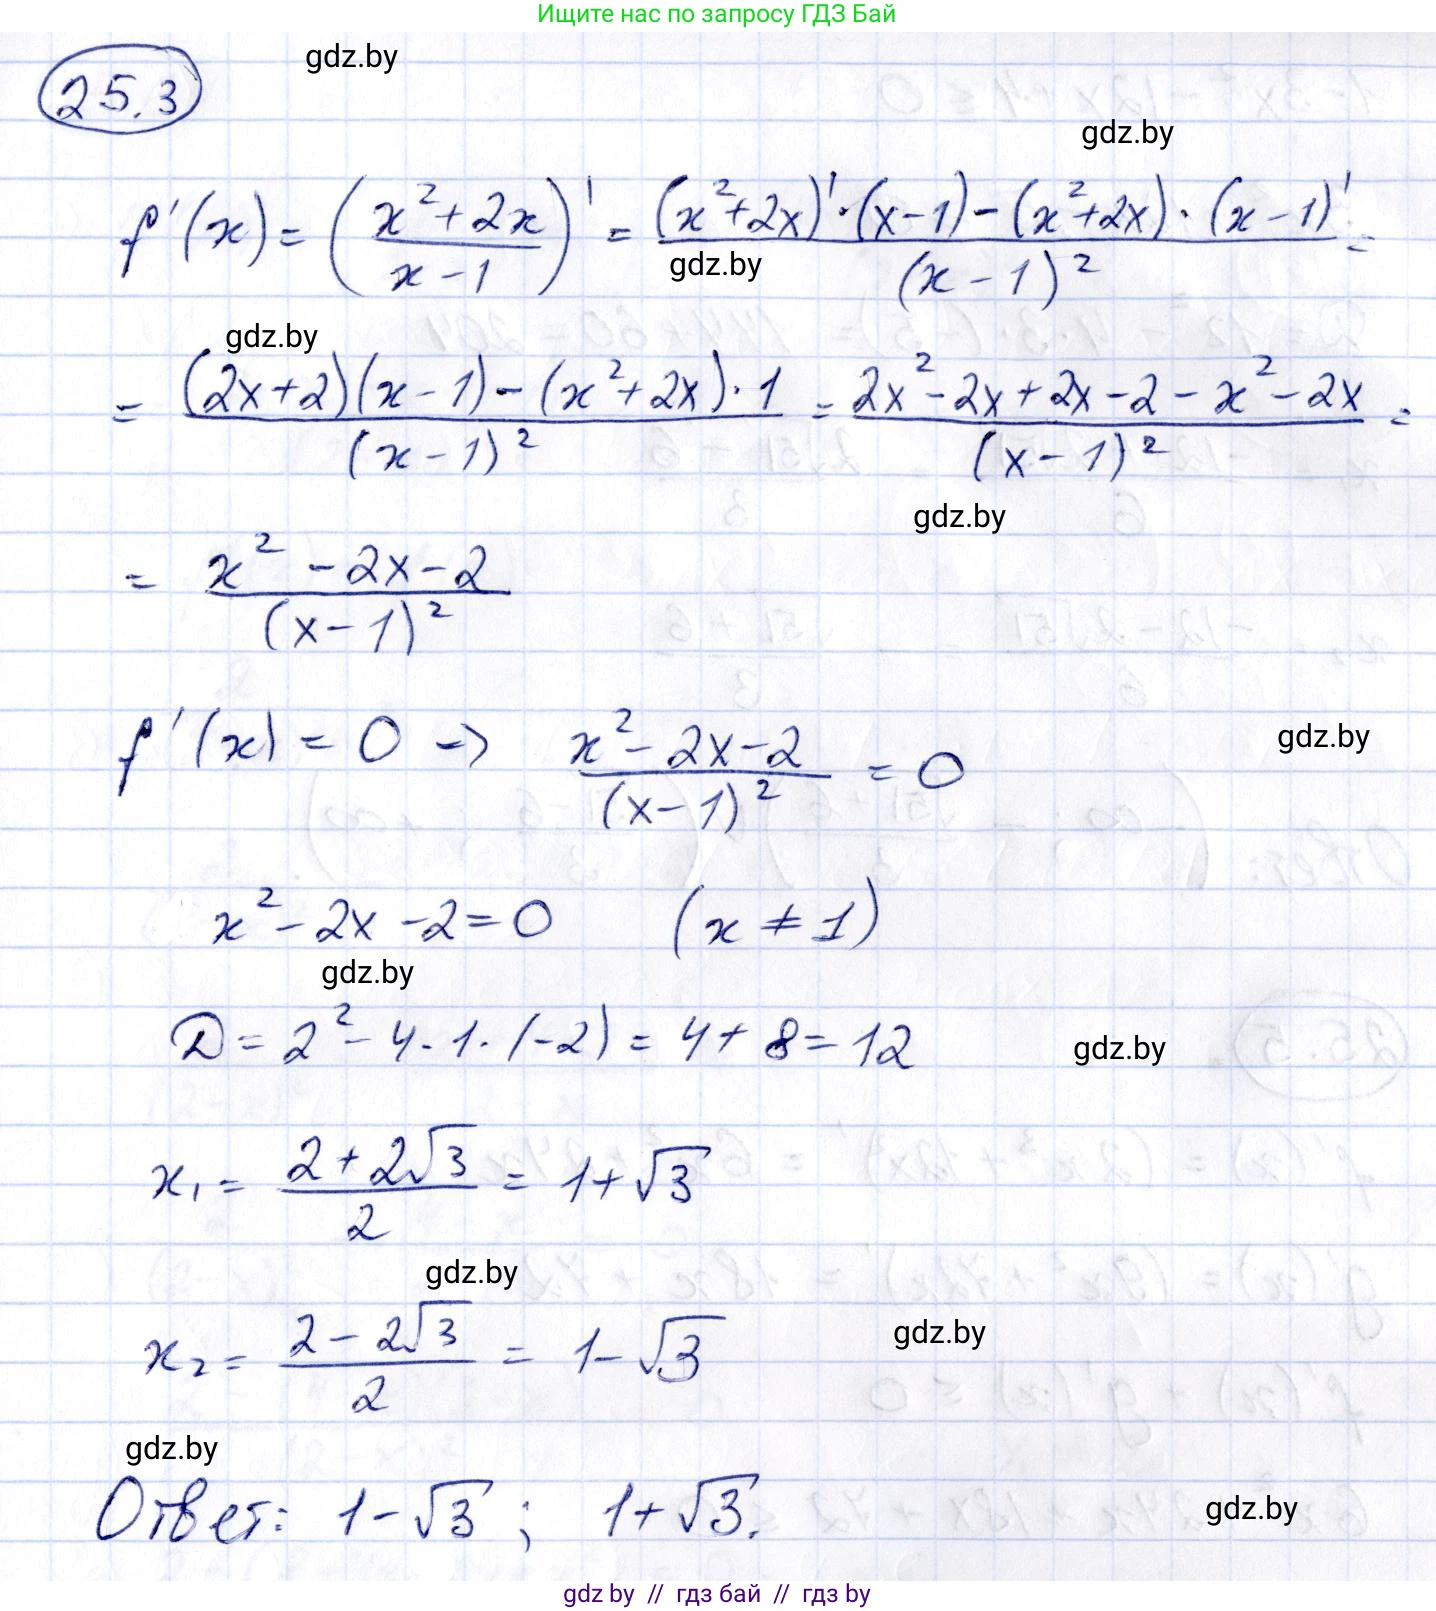 Ищите нас по запросу ГДЗ Бай
25.3
gdz.by
gdz.by
f'(x) = ((x² + 2x)/(x - 1))' = ((x² + 2x)' · (x - 1) - (x² + 2x) · (x - 1)')/(x - 1)² =
gdz.by
gdz.by
= ((2x + 2)(x - 1) - (x² + 2x) · 1)/(x - 1)² = (2x² - 2x + 2x - 2 - x² - 2x)/(x - 1)² =
gdz.by
= (x² - 2x - 2)/(x - 1)²
f'(x) = 0 -> (x² - 2x - 2)/(x - 1)² = 0
gdz.by
x² - 2x - 2 = 0 (x ≠ 1)
gdz.by
D = 2² - 4 · 1 · (-2) = 4 + 8 = 12
gdz.by
x₁ = (2 + 2√3)/2 = 1 + √3
gdz.by
x₂ = (2 - 2√3)/2 = 1 - √3
gdz.by
gdz.by
Ответ: 1 - √3 ; 1 + √3.
gdz.by
gdz by // гдз бай // гдз by